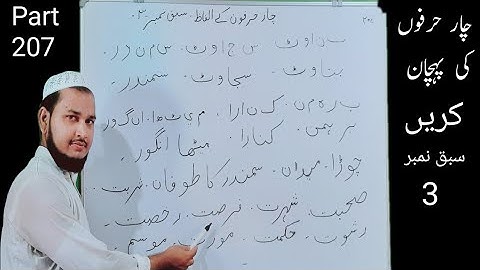 Part
207
چار حرفوں
کی پہچان
کریں
سبق نمبر
3
چار حرفوں کے الفاظ۔ سبق نمبر ۳۰
ب ن ا و ٹ س ج ا و ٹ س م ن د ر
بناوٹ۔ سجاوٹ۔ سمندر۔
ب ر ہ م ن۔ ک ن ا ر ا۔ م ی ٹھ ا۔ ا ن گ و ر
برہمن۔ کنارا۔ میٹھا انگور۔
چوڑا۔ میدان۔ سمندر کا طوفان۔ غربت
صحبت۔ شہرت۔ فرصت۔ رخصت۔
رشوت۔ حکمت۔ مورت۔ موسم۔